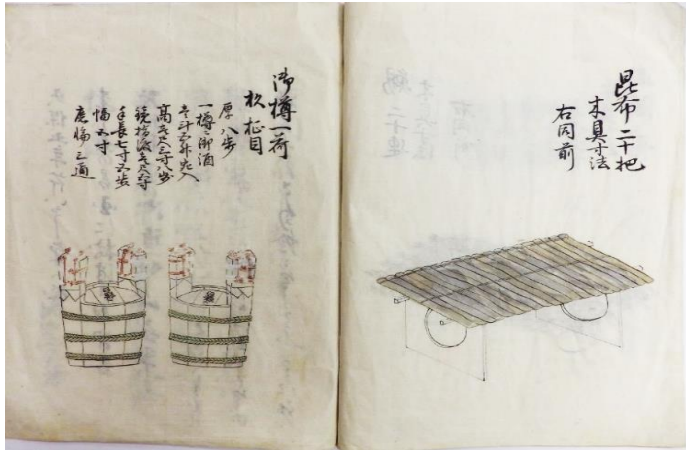 昆布二十把
木具寸法
右同前
御樽一荷
杉柾目
厚八歩
一樽ニ御酒
壱斗五升宛入
高壱尺三寸八歩
鏡指渡壱尺弐寸
手長七寸五歩
幅五寸
底輪三通